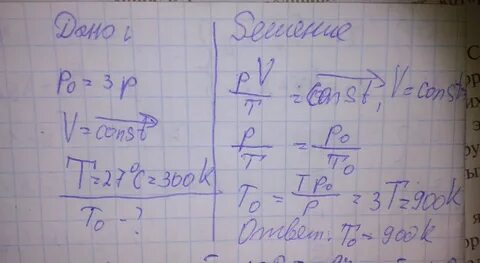 Дано:
P₀ = 3p
V = const
T = 27°C = 300k
T₀ - ?
Решение
PV/T = const, V = const
P/T = P₀/T₀
T₀ = TP₀/P = 3T = 900k
Ответ: T₀ = 900k